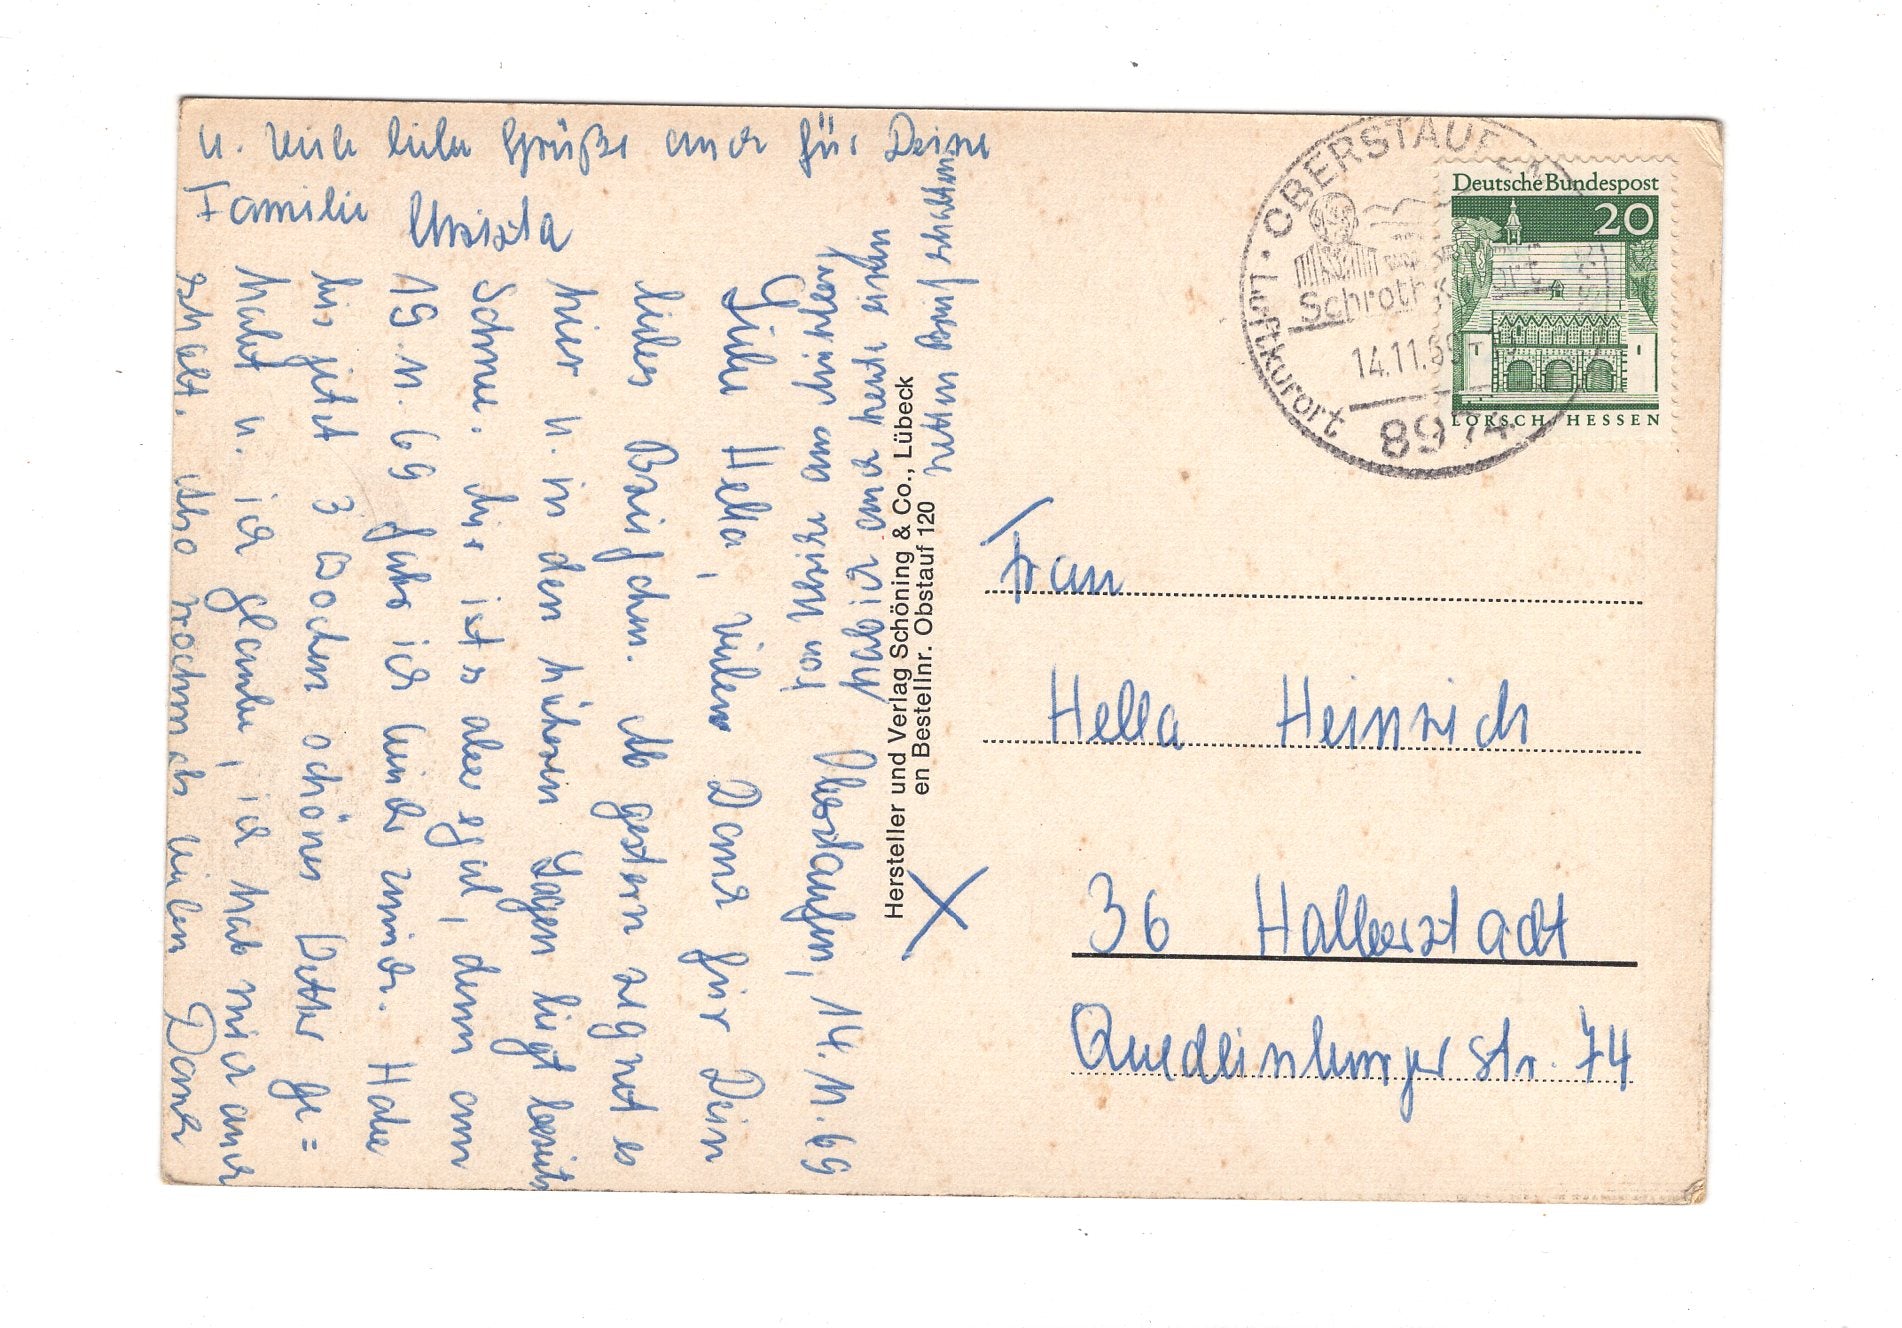 Oberstaufen, 14.11.69
Liebe Hella, vielen Dank für Dein
liebes Briefchen. Ab gestern regnet es
hier u. in den höheren Lagen liegt bereits
Schnee. Mir ist's aber egal, denn am
19.11.69 fahr ich wieder zurück. Habe
bis jetzt 3 Wochen schönes Wetter ge=
habt u. ich glaube, ich hab mich auch
erholt. Also nochmals vielen Dank
u. viele liebe Grüße auch für Deine
Familie Ursula
habich auch heute einen
netten Brief erhalten
Hersteller und Verlag Schöning & Co., Lübeck
en Bestellnr. Obstauf 120
OBERSTAUFEN
Schrothkurort
Luftkurort
14.11.69
8974
Deutsche Bundespost
20
LORSCH/HESSEN
Frau
Hella Heinrich
36 Halberstadt
Quedlinburger Str. 74